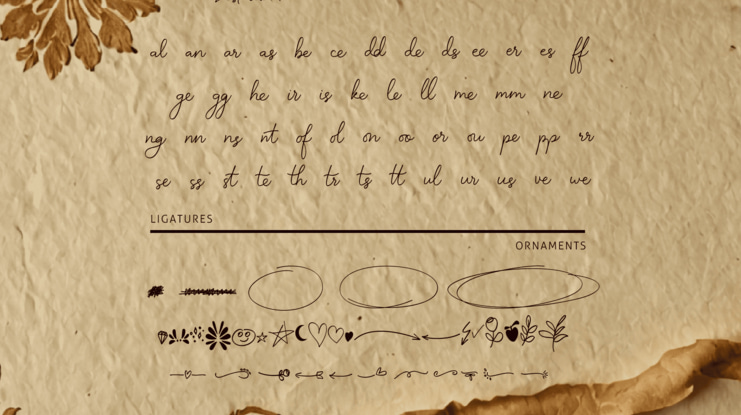 al an ar as be ce dd de ds ee er es ff
ge gg he ir is ke le ll me mm ne
ng nn ns nt of ol on oo or ou pe pp rr
se ss st te th tr ts tt ul ur us ve we
LIGATURES
ORNAMENTS